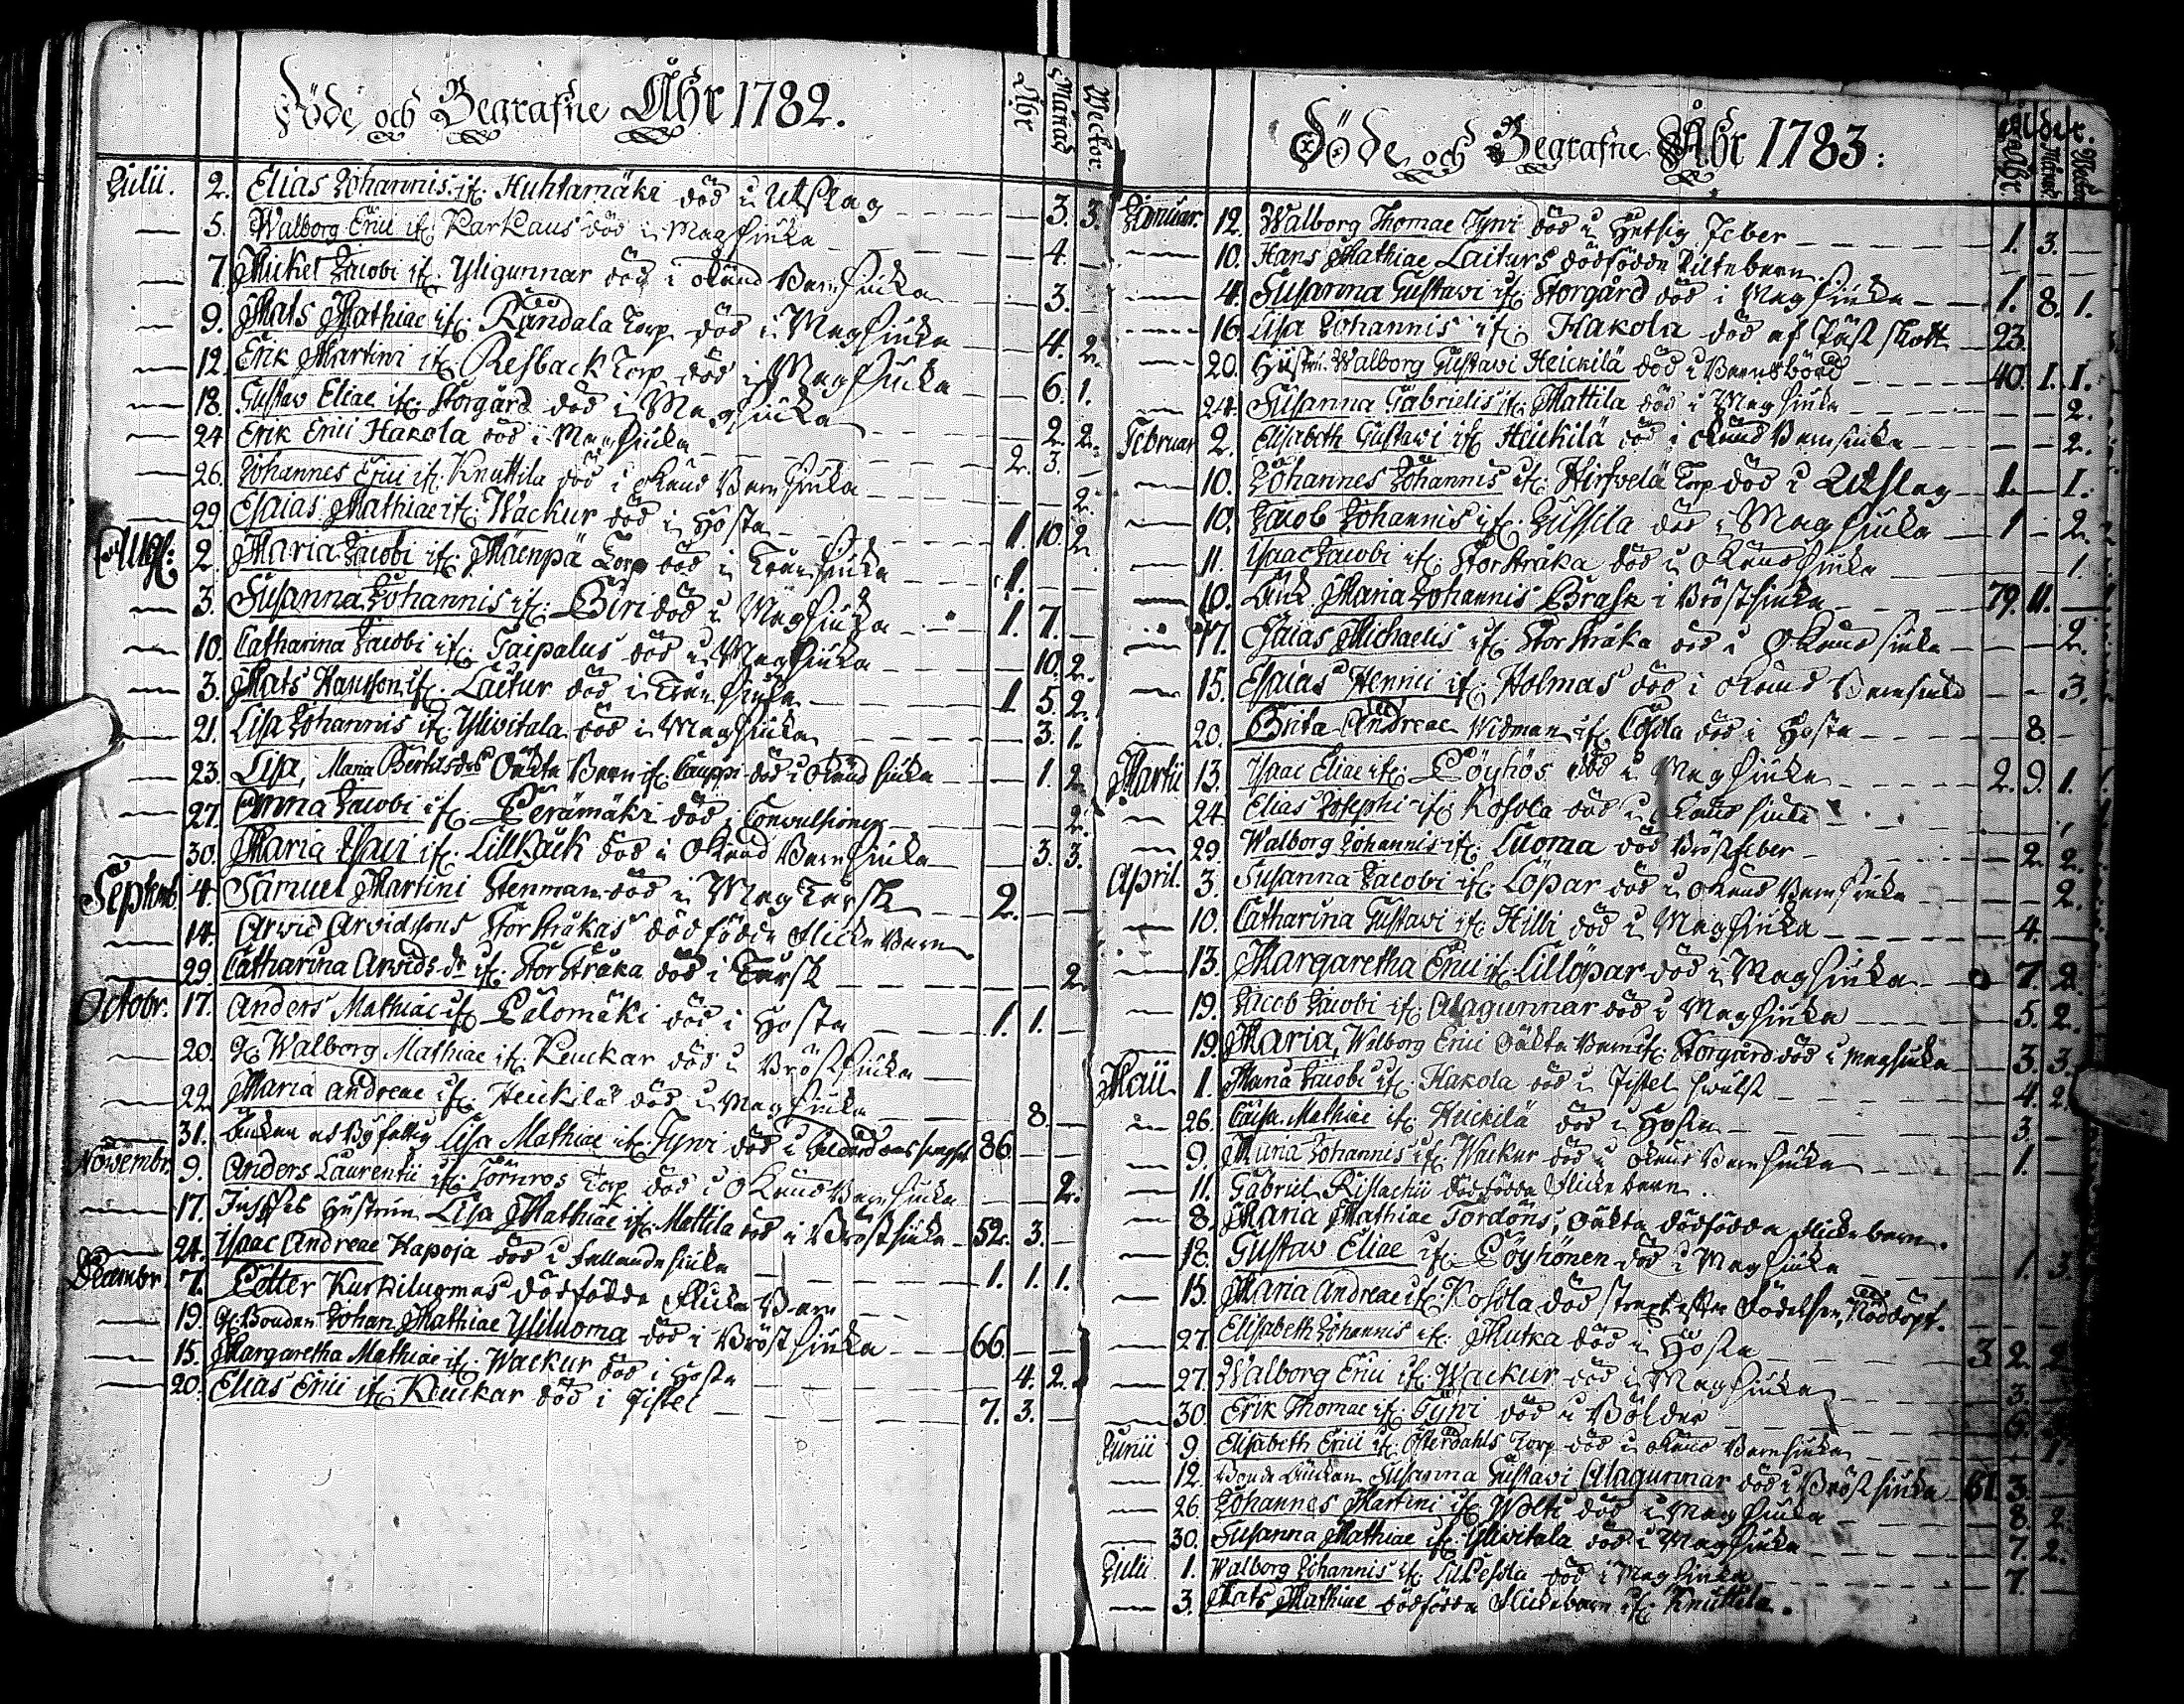 Döde och Begrafne Åhr 1782.
Åhr Månad Weckor.
Julii. 2. Elias Johannis if. Huhtamäki död i Utslag 3. 3.
5. Walborg Erici if. Karkaus död i Magsiuka 4.
7. Mickel Jacobi if. Yligunnar död i okänd Barnsiuka 3.
9. Mats Mathiae if. Randala Torp död i Magsiuka 4. 2.
12. Erik Martini if. Resback Torp död i Magsiuka 6. 1.
18. Gustav Eliae if. Storgård död i Magsiuka 2. 2.
24 Erik Erici Hakola död i Magsiuka 2. 3.
26. Johannes Erici if. Knuttila död i okänd Barnsiuka 2.
29. Esaias Mathiae if. Wackur död i Hosta 1. 10. 2.
Aug: 2. Maria Jacobi if. Mäenpä Torp död i siuka 1.
3. Susanna Johannis if. Biri död i Magsiuka 1. 7.
10. Catharina Jacobi if. Taipalus död i Magsiuka 10. 2.
3. Mats Hansson if. Laitur död i siuka 1 5. 2.
21. Lisa Johannis if. Yliwitala död i Magsiuka 3. 1.
23. Lisa, Maria Bertilsdrs Oäkta Barn if. Cauppi död i okänd siuka 1. 2.
27. Anna Jacobi if. Perämäki död i Convulsioner 2.
30. Maria Isaci if. Lillkåck död i okänd Barnsiuka 3. 3.
Septemb. 4. Samuel Martini Stenman död i Mag Torsk 2.
14. Arvid Arvidssons Storstråkas dödfödde Flicke Barn
29. Catharina Arvids dr if. Storstråka död i Torsk 2.
Octobr. 17. Anders Mathiae if. Palomäki död i Hosta 1. 1.
20. Walborg Mathiae if. Keuckar död i Bröstsiuka
22. Maria Andreae if. Heickilä död i Magsiuka 8.
31. Enkan Lisa Mathiae if. Tyni död i 86.
Novembr. 9. Anders Laurentii if. Törnros Torp död i okänd Barnsiuka 2.
17. Hustrun Lisa Mathiae if. Mattila död i Bröstsiuka 52. 3.
24. Isaac Andreae Hapoja död i fallandesiuka 1. 1. 1.
Decembr. 7. Petter Kurkiluomas dödfödde Flicke Barn
19. Bonden Johan Mathiae Yliluoma död i Bröstsiuka 66.
15. Margaretha Mathiae if. Wackur död i Hosta 4. 2.
20. Elias Erici if. Keuckar död i Fistel 7. 3.
Döde och Begrafne Åhr 1783:
Ålder.
Åhr. Månad Weckor
Januar. 12. Walborg Thomae Tyni död i Hetsig Feber 1. 3.
10. Hans Mathiae Laiturs dödfödde barn.
4. Susanna Gustavi if. Storgård död i Magsiuka 1. 8. 1.
16. Lisa Johannis if. Hakola död af 23.
20. Hustru Walborg Gustavi Heickilä död i Barnsbörd 40. 1. 1.
24. Susanna Gabrielis if. Mattila död i Magsiuka 2.
Februar 2. Elisabeth Gustavi if. Heickilä död i okänd Barnsiuka 2.
10. Johannes Johannis if. Hirfvelä Torp död i Utslag 1. 1.
10. Jacob Johannis if. Jussila död i Magsiuka 1 2.
11. Isaac Jacobi if. Storstråka död i okänd siuka 1.
10. Enk. Maria Johannis Brask i Bröstsiuka 79. 11.
17. Esaias Michaelis if. Storstråka död i okänd siuka 2.
15. Esaias Hennii if. Holmas död i okänd Barnsiuka 3.
20. Brita Andreae Widman if. död i Hosta 8.
Martii 13. Isaac Eliae if. Pöyhös död i Magsiuka 2. 9. 1.
24. Elias Josephi if. Kosola död i okänd siuka
29. Walborg Johannis if. Luoma död Bröstfeber 2. 2.
April. 3. Susanna Jacobi if. Löpar död i okänd Barnsiuka 2.
10. Catharina Gustavi if. Hilli död i Magsiuka 4.
13. Margaretha Erici if. Lillöpar död i Magsiuka 7. 2.
19. Jacob Jacobi if. Alagunnar död i Magsiuka 5. 2.
19. Maria, Walborg Erici Oäkta Barn if. Storgård död i Magsiuka 3. 3.
Maii 1. Maria Jacobi if. Hakola död i Fistel 4. 2.
26. Caisa Mathiae if. Heickilä död i Hosta 3.
9. Maria Johannis if. Wackur död i okänd Barnsiuka 1.
11. Gabriel Ristachii dödfödde Flicke barn.
8. Maria Mathiae Tordöns, Oäkta dödfödde Flicke barn.
18. Gustav Eliae if. Pöyhönen död i Magsiuka 1. 3.
15. Maria Andreae if. Kosola död strax efter Födelsen, Nöddöpt.
27. Elisabeth Johannis if. Mutka död i Hosta 3 2. 2
27. Walborg Erici if. Wackur död i Magsiuka 3.
30. Erik Thomae if. Tyni död i Bölder 6.
Junii 9. Elisabeth Erici if. Österdahls Torp död i okänd Barnsiuka 1.
12. Bonde Enkan Susanna Gustavi Alagunnar död i Bröstsiuka 61 3.
26. Johannes Martini if. Wolti död i Magsiuka 8. 2
30. Susanna Mathiae if. Yliwitala död i Magsiuka 7. 2.
Julii 1. Walborg Johannis if. död i Magsiuka 7.
3. Mats Mathiae dödfödde Flickebarn if. Knuttila.